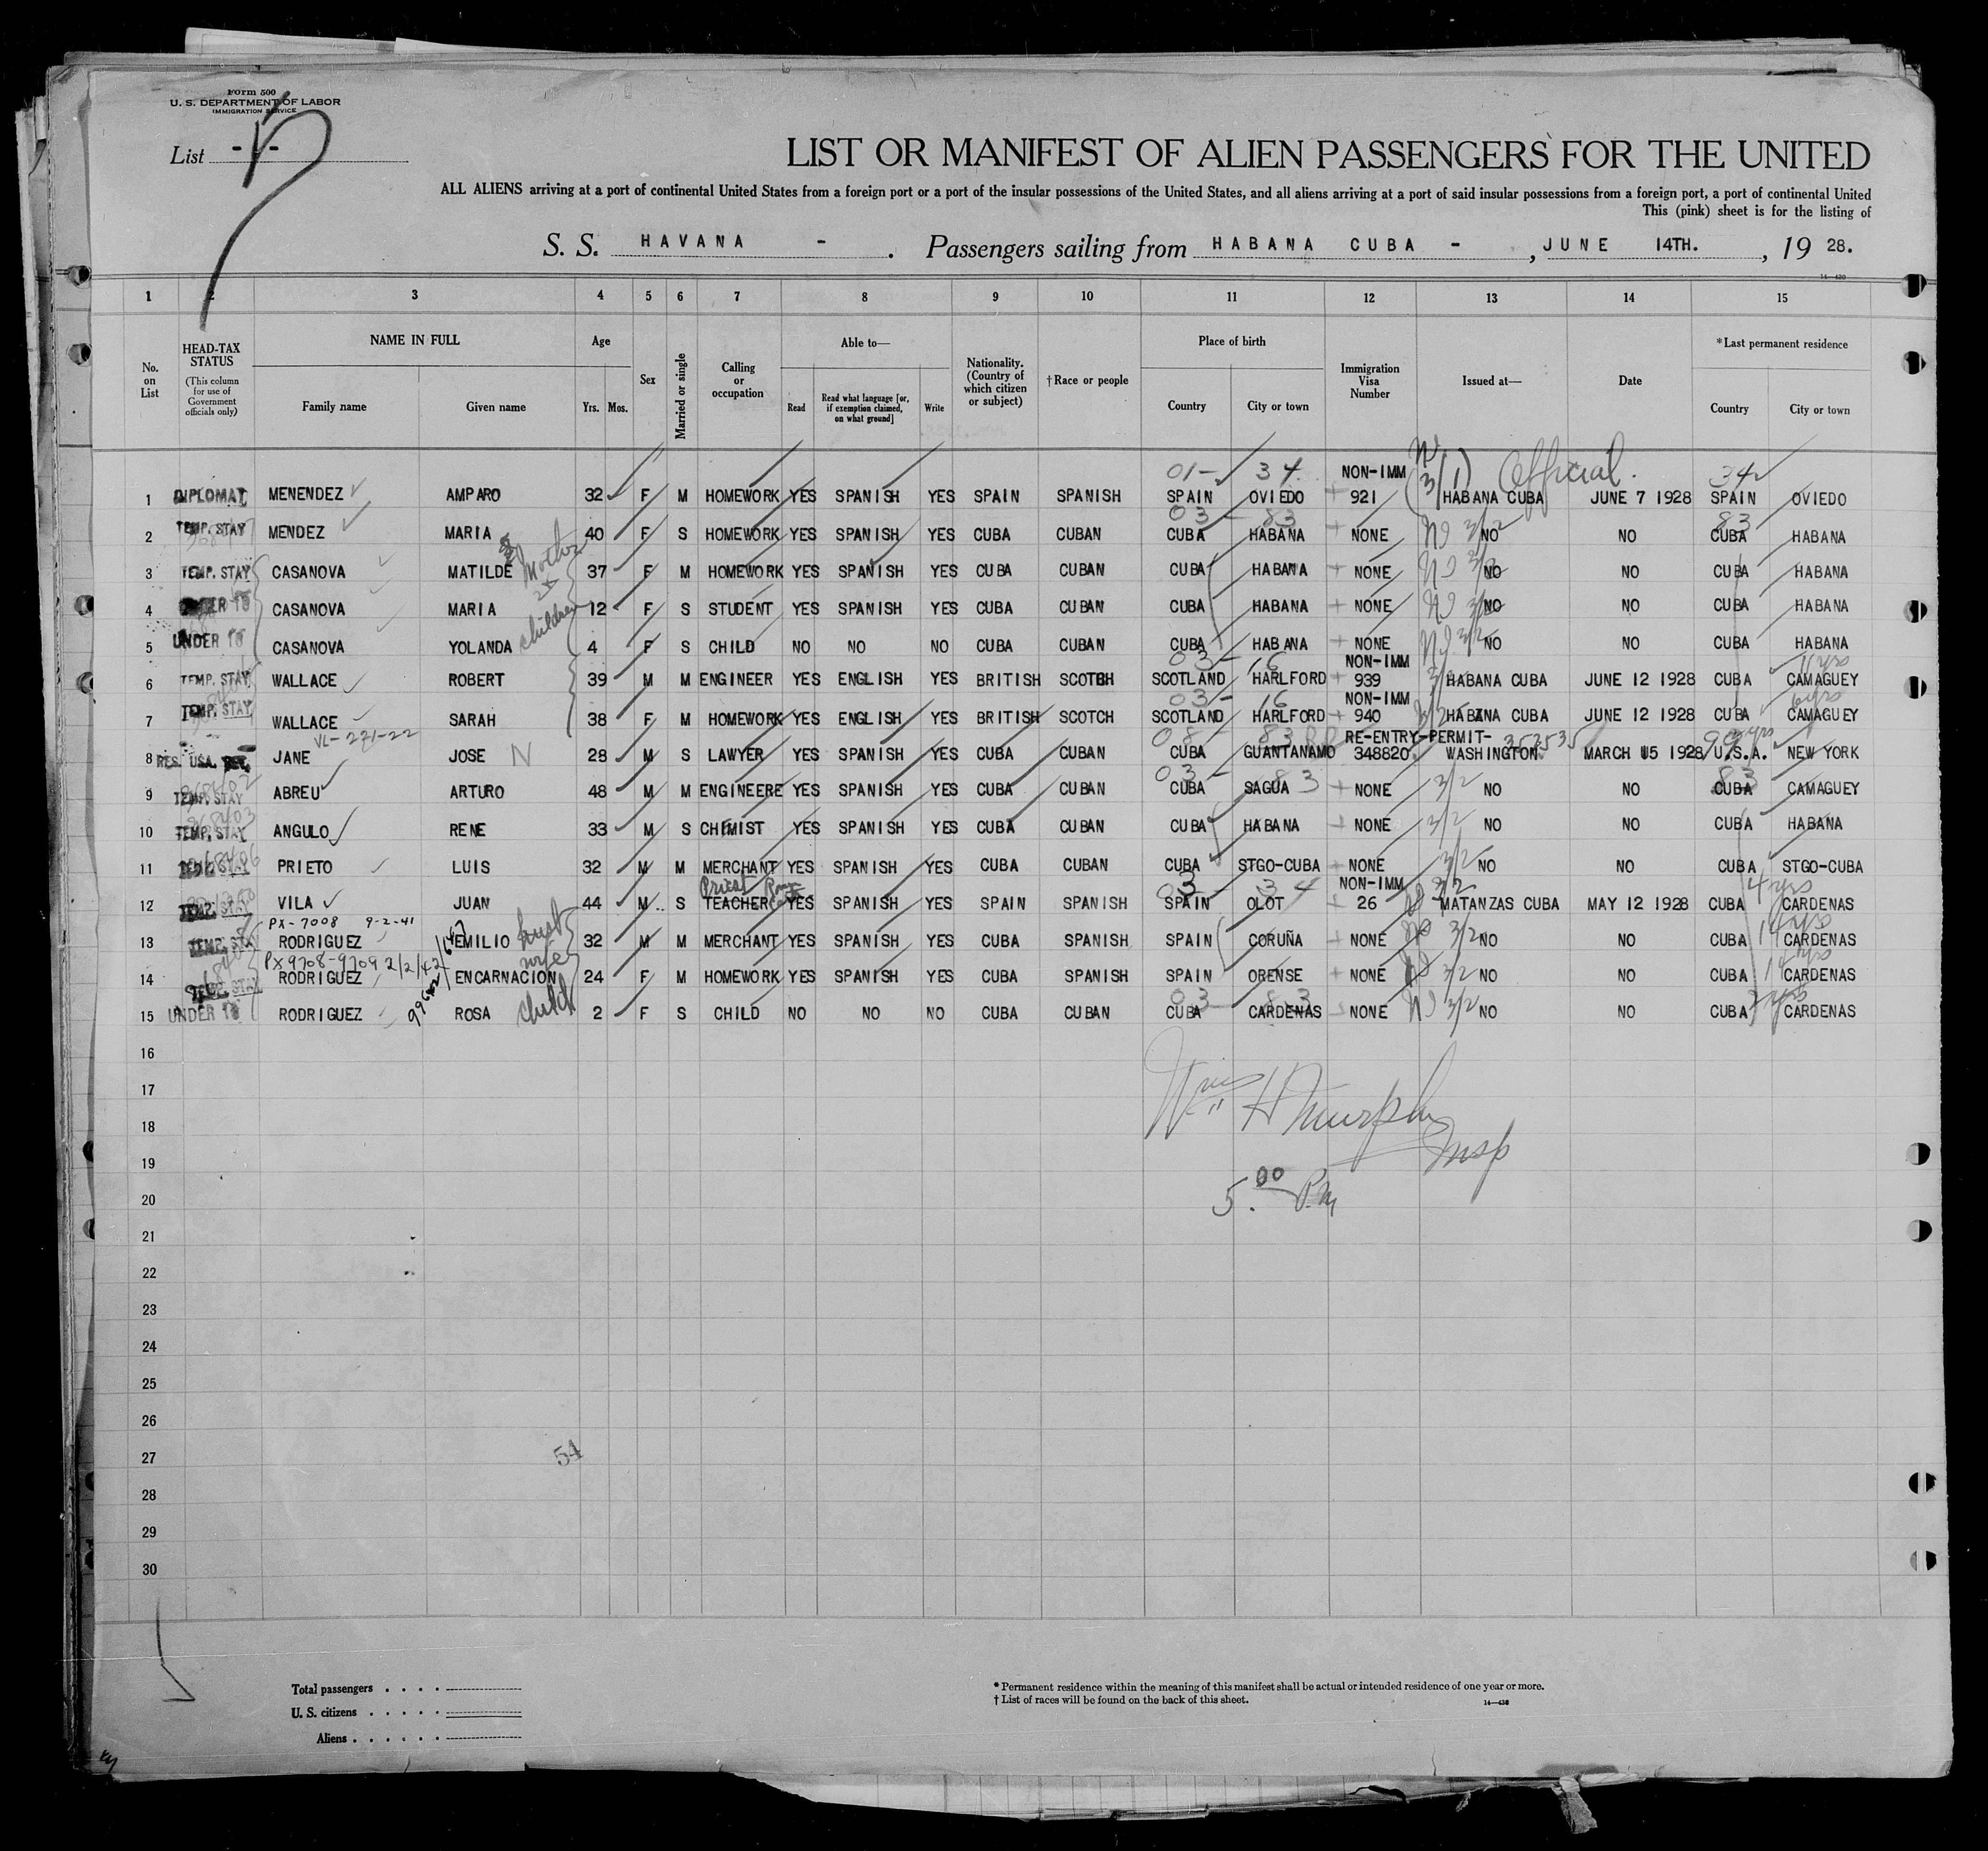 Form 500
U. S. DEPARTMENT OF LABOR
IMMIGRATION SERVICE
List
LIST OR MANIFEST OF ALIEN PASSENGERS FOR THE UNITED
ALL ALIENS arriving at a port of continental United States from a foreign port or a port of the insular possessions of the United States, and all aliens arriving at a port of said insular possessions from a foreign port, a port of continental United
This (pink) sheet is for the listing of
S. S. HAVANA - . Passengers sailing from HABANA CUBA - , JUNE 14TH. , 19 28.
1 2 3 4 5 6 7 8 9 10 11 12 13 14 15
No. on List
HEAD-TAX STATUS (This column for use of Government officials only)
NAME IN FULL Family name Given name
Age Yrs. Mos.
Sex
Married or single
Calling or occupation
Able to— Read Read what language [or, if exemption claimed, on what ground] Write
Nationality. (Country of which citizen or subject)
†Race or people
Place of birth Country City or town
Immigration Visa Number
Issued at—
Date
*Last permanent residence Country City or town
01- 34 NON-IMM 3/1) Official. 34
1 DIPLOMAT MENENDEZ AMPARO 32 F M HOMEWORK YES SPANISH YES SPAIN SPANISH SPAIN OVIEDO 921 HABANA CUBA JUNE 7 1928 SPAIN OVIEDO
03 - 83 83
2 TEMP. STAY MENDEZ MARIA 40 F S HOMEWORK YES SPANISH YES CUBA CUBAN CUBA HABANA NONE 3/2 NO NO CUBA HABANA
3 TEMP. STAY CASANOVA MATILDE Mother 37 F M HOMEWORK YES SPANISH YES CUBA CUBAN CUBA HABANA NONE 3/2 NO NO CUBA HABANA
4 UNDER 16 CASANOVA MARIA 2 children 12 F S STUDENT YES SPANISH YES CUBA CUBAN CUBA HABANA NONE 3/2 NO NO CUBA HABANA
5 UNDER 16 CASANOVA YOLANDA 4 F S CHILD NO NO NO CUBA CUBAN CUBA HABANA NONE 3/2 NO NO CUBA HABANA
03 - 16 NON-IMM 11 yrs
6 TEMP. STAY WALLACE ROBERT 39 M M ENGINEER YES ENGLISH YES BRITISH SCOTCH SCOTLAND HARLFORD 939 HABANA CUBA JUNE 12 1928 CUBA CAMAGUEY
03 - 16 NON-IMM 6 yrs
7 TEMP. STAY WALLACE SARAH 38 F M HOMEWORK YES ENGLISH YES BRITISH SCOTCH SCOTLAND HARLFORD 940 3/2 HABANA CUBA JUNE 12 1928 CUBA CAMAGUEY
VL-271-22 08 - 83 RE-ENTRY-PERMIT- 353535 99
8 RES. USA. JANE JOSE N 28 M S LAWYER YES SPANISH YES CUBA CUBAN CUBA GUANTANAMO 348820 WASHINGTON MARCH 15 1928 U.S.A. NEW YORK
03 - 83 83
9 TEMP. STAY ABREU ARTURO 48 M M ENGINEERE YES SPANISH YES CUBA CUBAN CUBA SAGUA NONE 3/2 NO NO CUBA CAMAGUEY
10 TEMP. STAY ANGULO RENE 33 M S CHIMIST YES SPANISH YES CUBA CUBAN CUBA HABANA NONE 3/2 NO NO CUBA HABANA
11 TEMP. STAY PRIETO LUIS 32 M M MERCHANT YES SPANISH YES CUBA CUBAN CUBA STGO-CUBA NONE 3/2 NO NO CUBA STGO-CUBA
Priest 03 34 NON-IMM 3/2 4 yrs
12 TEMP. STAY VILA JUAN 44 M S TEACHER YES SPANISH YES SPAIN SPANISH SPAIN OLOT 26 MATANZAS CUBA MAY 12 1928 CUBA CARDENAS
PX-7008 9-2-41 14 yrs
13 TEMP. STAY RODRIGUEZ EMILIO husb 32 M M MERCHANT YES SPANISH YES CUBA SPANISH SPAIN CORUÑA NONE 3/2 NO NO CUBA CARDENAS
PX9708-9709 2/2/42 wife 14 yrs
14 TEMP. STAY RODRIGUEZ ENCARNACION 24 F M HOMEWORK YES SPANISH YES CUBA SPANISH SPAIN ORENSE NONE 3/2 NO NO CUBA CARDENAS
03 83 2 yrs
15 UNDER 16 RODRIGUEZ ROSA child 2 F S CHILD NO NO NO CUBA CUBAN CUBA CARDENAS NONE 3/2 NO NO CUBA CARDENAS
16
17
Wm H Murphy
18
19
Insp
20
5.00 P.M
21
22
23
24
25
26
27
54
28
29
30
Total passengers . . . .
U. S. citizens . . . . .
Aliens . . . . . .
* Permanent residence within the meaning of this manifest shall be actual or intended residence of one year or more.
† List of races will be found on the back of this sheet. 14—430